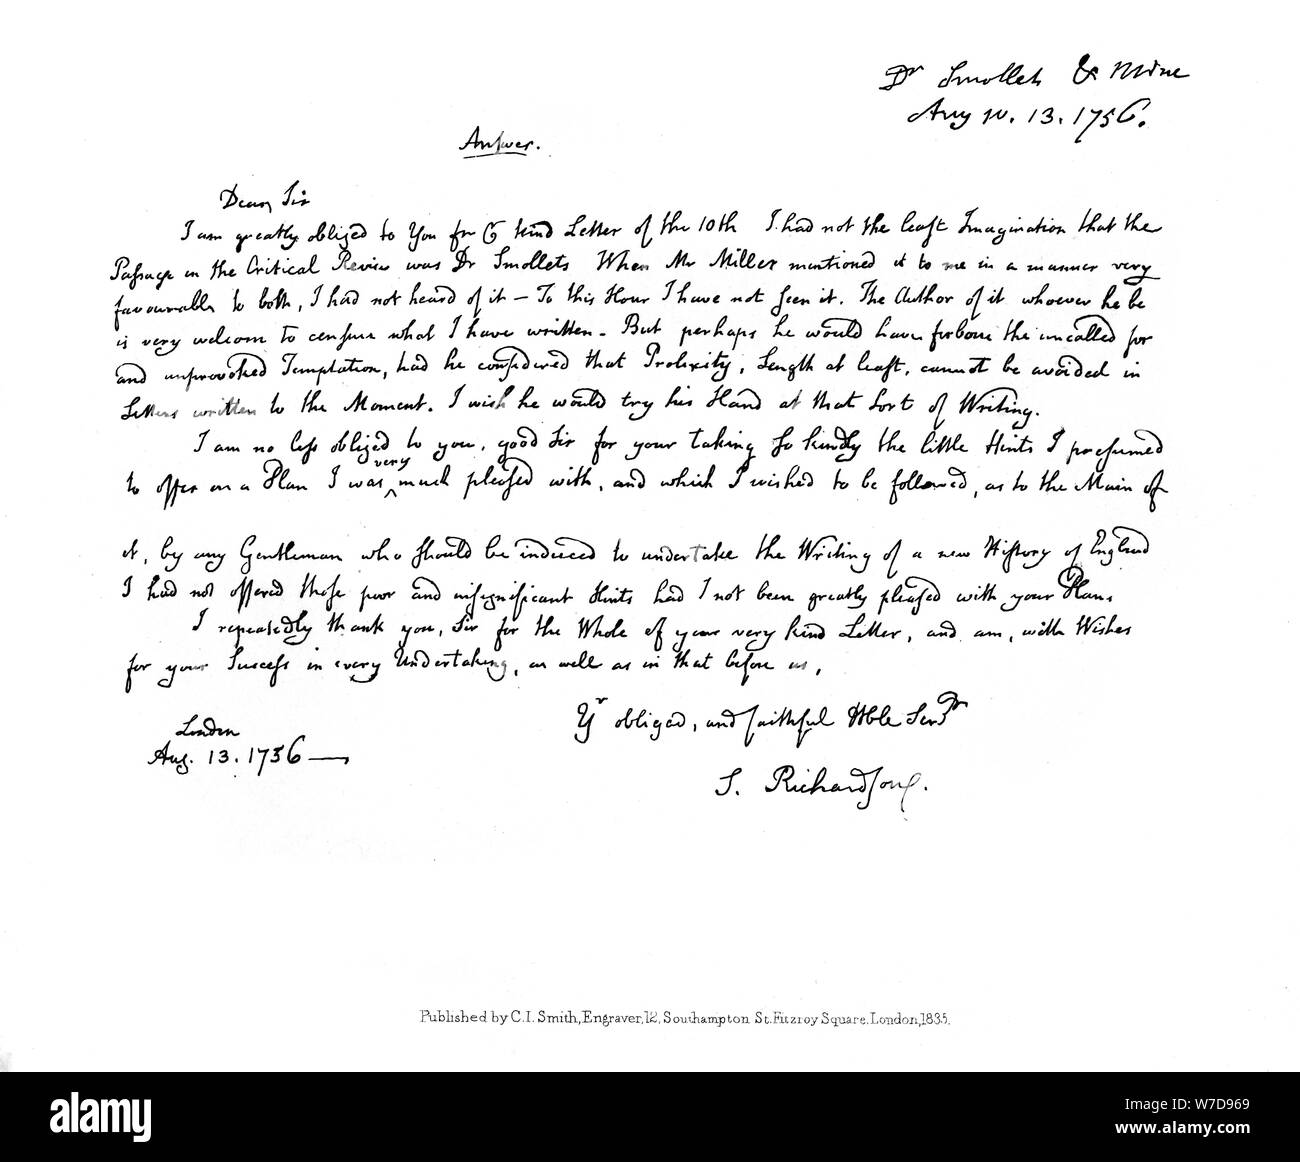 Dr Smollets & Mine
Aug 10. 13. 1756.
Answer.
Dear Sir
I am greatly obliged to You for kind Letter of the 10th I had not the least Imagination that the
Passage in the Critical Review was Dr Smollets When Mr Miller mentioned it to me in a manner very
favourable to both, I had not heard of it — To this Hour I have not seen it. The Author of it whoever he be
is very welcom to censure what I have written. But perhaps he would have forborne the uncalled for
and unprovoked Temptation, had he considered that Prolixity, Length at least, cannot be avoided in
Letters written to the Moment. I wish he would try his Hand at that Sort of Writing.
I am no less obliged to you, good Sir for your taking so kindly the little Hints I presumed
to offer on a Plan I was very much pleased with, and which I wished to be followed, as to the Main of
it, by any Gentleman who should be induced to undertake the Writing of a new History of England
I had not offered those poor and insignificant Hints had I not been greatly pleased with your Plan
I repeatedly thank you, Sir for the Whole of your very kind Letter, and am, with Wishes
for your Success in every Undertaking, as well as in that before us,
Yr obliged, and faithful Hble Servt
London
Aug. 13. 1756 —
S. Richardson.
Published by C.I. Smith, Engraver, 12, Southampton St. Fitzroy Square. London, 1835.
alamy
Image ID: W7D969
www.alamy.com